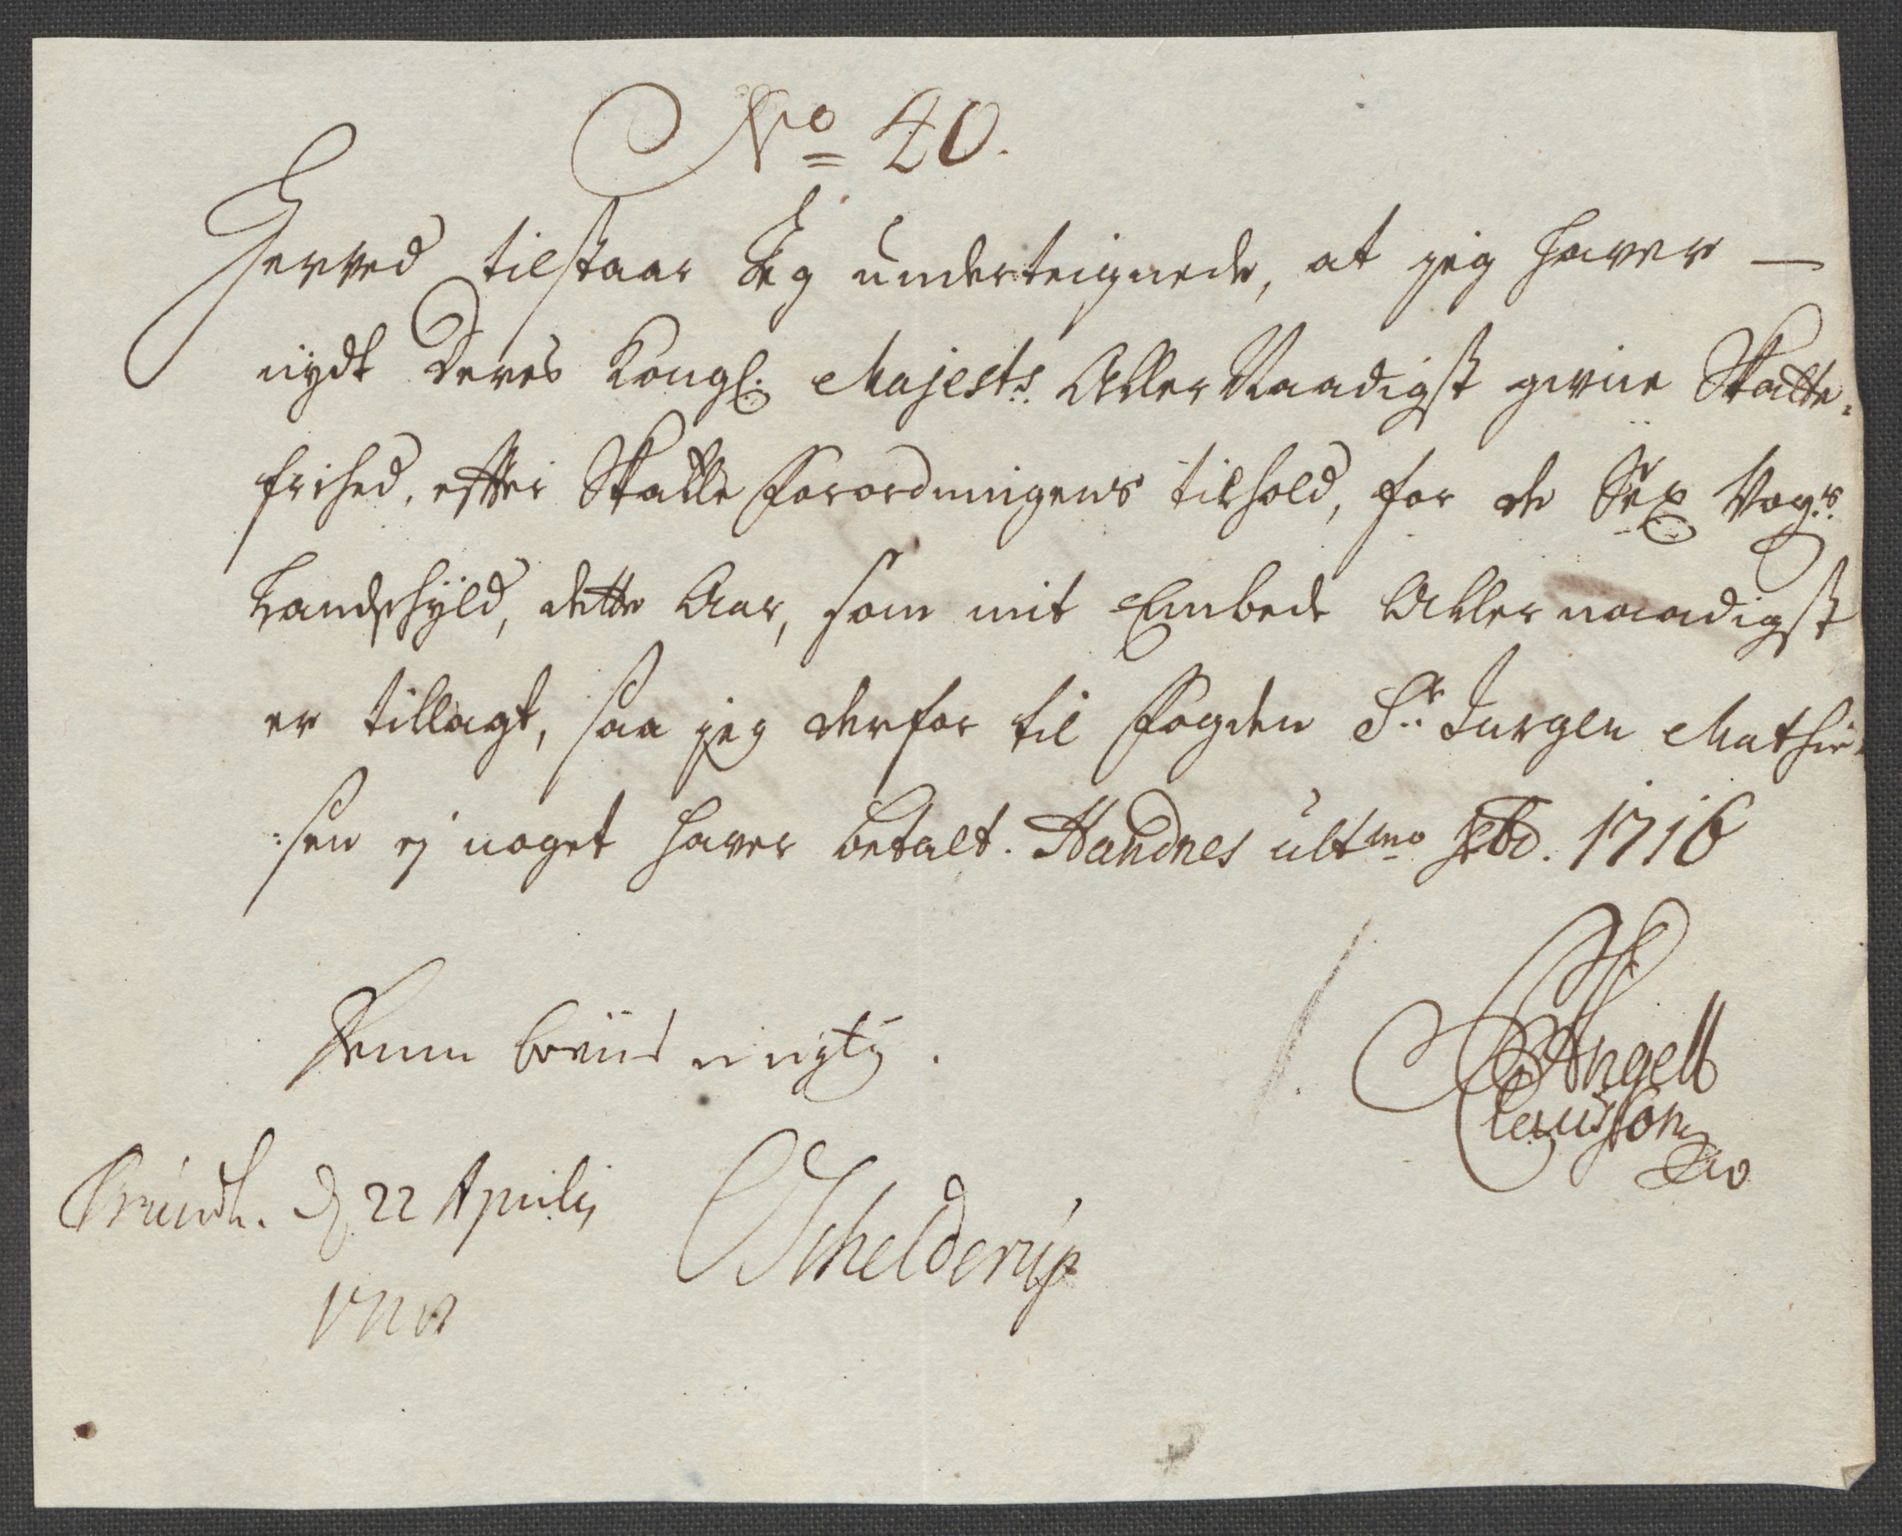 No 40.
Herved tilstaar Jeg underteignede, at jeg haver —
nydt Deres Kongl: Majests: Aller Naadigst givne Skatte-
frihed, effter Skatte Forordningens tilhold, for de Sex Vog:s
Landschyld, dette Aar, som mit Embede Allernaadigst
er tillagt, saa jeg derfor til Fogden Sr. Jurgen Mathie-
:sen ej noget haver betalt. Handnes ultmo 1716
Angell
Claussøn
Trundh. d 22 Aprilij
Schelderup